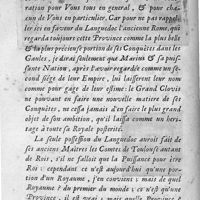 nation pour Vous tous en general, & pour chacun
de Vous en particulier. Car pour ne pas rappeller
ici en faveur du Languedoc l'ancienne Rome, qui
regarda toujours cette Province comme la plus belle
& la plus précieuse portion de ses Conquêtes dans les
Gaules, je dirai seulement que Marius & sa puissante
Nation, après l'avoir regardée comme un second
siége de leur Empire, lui laisserent leur nom
comme pour gage de leur estime: le Grand Clovis
ne pouvant en faire une nouvelle matiere de sa
Conquête, ne cessa jamais d'en faire le plus grand
objet de son ambition, qu'il laissa comme un heritage
à toute sa Royale posterité.
La seule possession du Languedoc auroit fait de
ses anciens Maîtres les Comtes de Toulouse autant
de Rois, s'il ne falloit que la Puissance pour être
Roi: cependant ce n'est aujourd'hui qu'une portion
d'un Royaume, j'en conviens; mais de quel
Royaume? du premier du monde; ce n'est qu'une
Province, il est vrai; mais quelle Province?